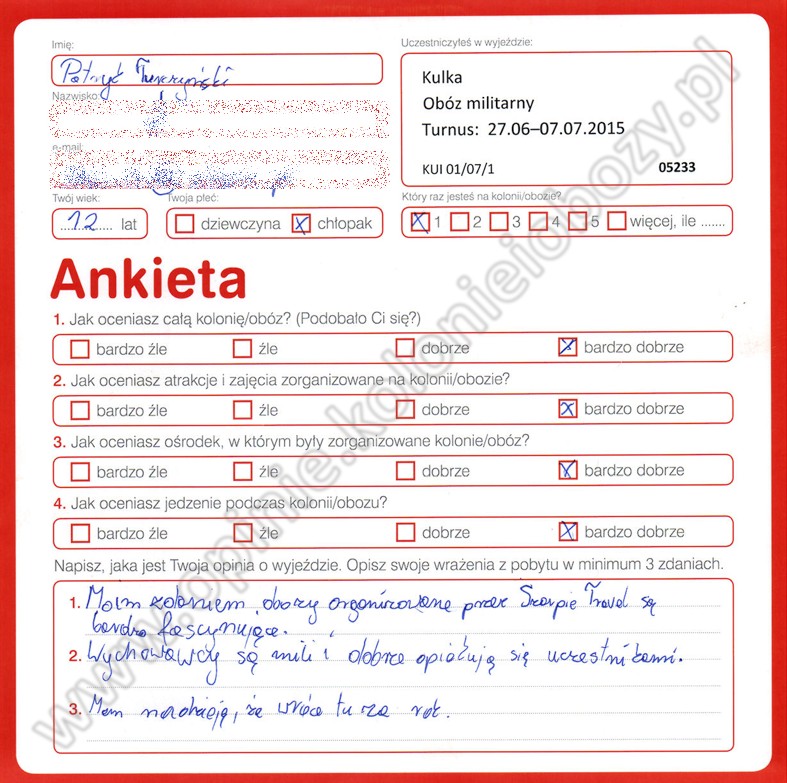 Imię:
Patryk
Nazwisko:
e-mail:
Twój wiek:
12 lat
Twoja płeć:
dziewczyna X chłopak
Uczestniczyłeś w wyjeździe:
Kulka
Obóz militarny
Turnus: 27.06–07.07.2015
KUI 01/07/1 05233
Który raz jesteś na kolonii/obozie?
X 1 2 3 4 5 więcej, ile .......
Ankieta
1. Jak oceniasz całą kolonię/obóz? (Podobało Ci się?)
bardzo źle źle dobrze X bardzo dobrze
2. Jak oceniasz atrakcje i zajęcia zorganizowane na kolonii/obozie?
bardzo źle źle dobrze X bardzo dobrze
3. Jak oceniasz ośrodek, w którym były zorganizowane kolonie/obóz?
bardzo źle źle dobrze X bardzo dobrze
4. Jak oceniasz jedzenie podczas kolonii/obozu?
bardzo źle źle dobrze X bardzo dobrze
Napisz, jaka jest Twoja opinia o wyjeździe. Opisz swoje wrażenia z pobytu w minimum 3 zdaniach.
1. Moim zdaniem obozy organizowane przez Skarpie Travel są
bardzo fascynujące.
2. Wychowawcy są mili i dobrze opiekują się uczestnikami.
3. Mam nadzieję, że wrócę tu za rok.
www.opinie.kolonieiobozy.pl